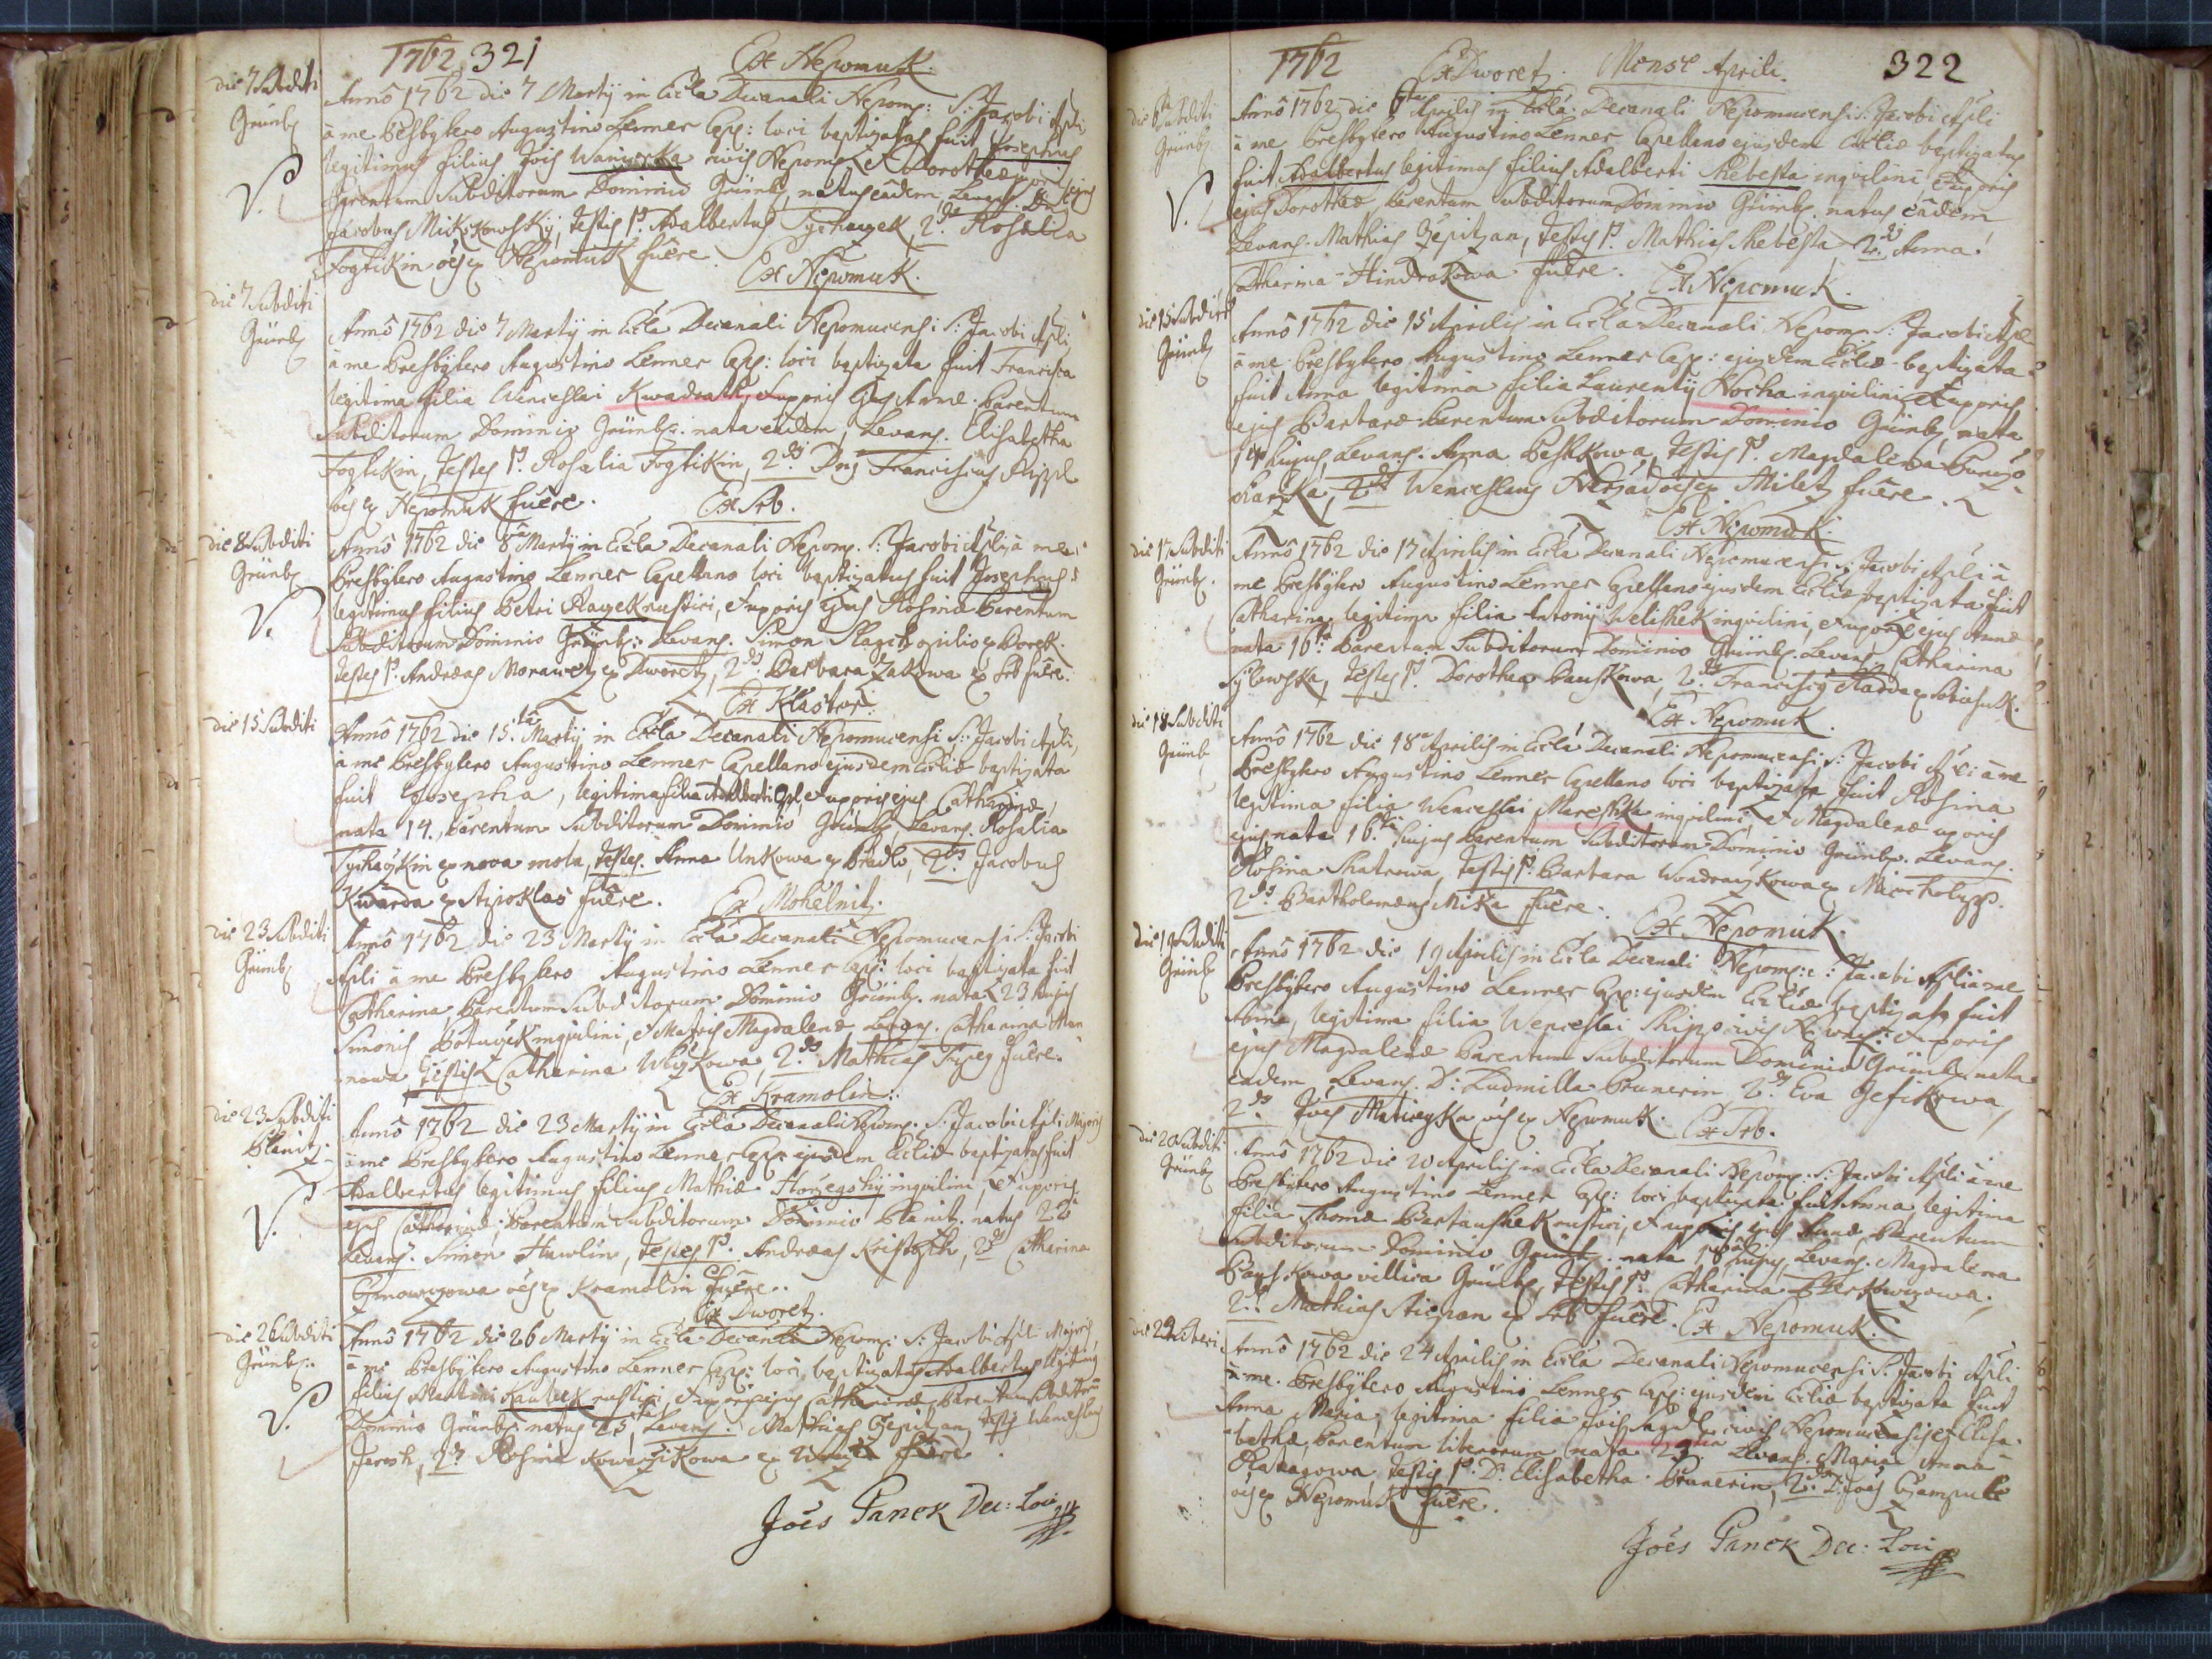 1762 321 Ex Nepomuk.
die 7 Subditi
Grünb
Anno 1762 die 7 Martij in Eccla Decanali Nepom: S: Jacobi Apli
à me Presbytero Augustino Lenner Cap: loci baptizatus fuit Josephus
legitimus filius Jois Waniczka civis Nepom: et Dorotheæ uxoris ejus
Parentum Subditorum Dominio Grünb, natus eâdem, Levans. D
Jacobus Mikskowsky, testis 1. Adalbertus 2. Rosalia
Fogtikin oes ex Nepomuk fuêre
Ex Nepomuk.
die 7 Subditi
Grünb
Anno 1762 die 7 Martij in Eccla Decanali Nepomucensi S: Jacobi Apli
à me Presbytero Augustino Lenner Cap: loci baptizata fuit Francisca
legitima filia Wenceslai Kwadrath, et uxoris ejus Annæ. Parentum
Subditorum Dominio Grünb: nata eâdem, Levans. Elisabetha
Fogtikin, testes 1. Rosalia Fogtikin, 2. Dnus Franciscus
oes ex Nepomuk fuêre.
Ex Srb.
die 8 Subditi
Grünb
Anno 1762 die 8 Martij in Eccla Decanali Nepom. S: Jacobi Apli à me
Presbytero Augustino Lenner Capellano loci baptizatus fuit Josephus
legitimus filius Petri Hagek rustici, et uxoris ejus Rosinæ Parentum
Subditorum Dominio Grünb: Levans. Simon opilio ex Borek.
testes 1. Andreas Morawetz ex Dworetz, 2. Barbara Zakowa ex Srb fuêre.
Ex Klaster.
die 15 Subditi
Anno 1762 die 15. Martij in Eccla Decanali Nepomucensi S: Jacobi Apli,
à me Presbytero Augustino Lenner Capellano ejusdem Eccliæ baptizata
fuit Josepha, legitima filia Adalberti Opl, et uxoris ejus Catharinæ,
nata 14, Parentum Subditorum Dominio Grünb, Levans. Rosalia
ex nova mola, testes. Anna Unkowa ex Pradlo, 2. Jacobus
Kwarda ex Sipoklas fuêre.
Ex Mohelnitz.
die 23 Subditi
Grünb
Anno 1762 die 23 Martij in Eccla Decanali Nepomucensi S: Jacobi
Apli à me Presbytero Augustino Lenner Cap: loci baptizata fuit
Catharina Parentum Subditorum Dominio Grünb. nata 23 hujus
Simonis inquilini, et Matris Magdalenæ, Levans. Catharina
nowa, testis Catharina Wlczkowa, 2. Mathias fuêre.
Ex Kramolin.
die 23 Subditi
Planitz
Anno 1762 die 23 Martij in Eccla Decanali Nepom. S: Jacobi Apli Majoris
à me Presbytero Augustino Lenner Cap: ejusdem Eccliæ baptizatus fuit
Adalbertus legitimus filius Mathiæ Horzegshy inquilini, et uxoris
ejus Catharinæ, Parentum Subditorum Dominio Planitz. natus 22
Levans. Simon Hawlin, testes 1. Andreas Kristoph, 2. Catharina
oes ex Kramolin fuêre.
Ex Dworetz.
die 26 Subditi
Grünb:
Anno 1762 die 26 Martij in Eccla Decanali Nepom: S: Jacobi Apli Majoris
à me Presbytero Augustino Lenner Cap: loci baptizatus Adalbertus legitimus
filius Martini Kaubek rustici, et uxoris ejus Catharinæ, Parentum Subditoru
Dominio Grünb: natus 25, Levans. Mathias Czepitzan, testis Wenceslaus
Jeresh, 2. Rosina Kowarzikowa ex fuêre
Joès Panek Dec: Loci

1762 Ex Dworetz. Mense Aprili. 322
die 6 Subditi
Grünb
Anno 1762 die 6 Aprilis in Eccla Decanali Nepomucensi S: Jacobi Apli
à me Presbytero Augustino Lenner Capellano ejusdem Eccliæ baptizatus
fuit Adalbertus legitimus filius Adalberti Shebesta inquilini, et uxoris
ejus Dorotheæ Parentum Subditorum Dominio Grünb. natus eâdem,
Levans. Mathias Zepitzan, testis 1. Mathias Shebesta, 2. Anna
Catharina Hindrakowa fuêre.
Ex Nepomuk.
die 15 Subditi
Grünb
Anno 1762 die 15 Aprilis in Eccla Decanali Nepom. S: Jacobi Apl
à me Presbytero Augustino Lenner Cap: ejusdem Eccliæ baptizata
fuit Anna legitima filia Laurentij Hocha inquilini, et uxoris
ejus Barbaræ Parentum Subditorum Dominio Grünb, nata
14 hujus, Levans. Anna Peshkowa, testis 1. Magdalena
2. Wenceslaus oes ex Miletz fuêre.
Ex Nepomuk.
die 17 Subditi
Grünb.
Anno 1762 die 17 Aprilis in Eccla Decanali Nepomucensi S: Jacobi Apli à
me Presbytero Augustino Lenner Capellano ejusdem Eccliæ baptizata fuit
Catharina, legitima filia Antonij Welishek inquilini, et uxoris ejus Annæ
nata 16. Parentum Subditorum Dominio Grünb. Levans Catharina
Sylewska, testes 1. Dorothea Pauskowa, 2. Franciscus
Ex Nepomuk.
die 18 Subditi
Grünb
Anno 1762 die 18 Aprilis in Eccla Decanali Nepomucensi S: Jacobi Apli à me
Presbytero Augustino Lenner Capellano loci baptizata fuit Rosina
legitima filia Wenceslai Mareshka inquilini, et Magdalenæ uxoris
ejus nata 16. hujus Parentum Subditorum Dominio Grünb. Levans.
Rosina Shatrowa, testis 1. Barbara Wondraczkowa ex Miecholup.
2. Bartholomæus Mika fuêre.
Ex Nepomuk.
die 19 Subditi
Grünb
Anno 1762 die 19 Aprilis in Eccla Decanali Nepom: S: Jacobi Apli à me
Presbytero Augustino Lenner Cap: ejusdem Eccliæ baptizata fuit
Anna, legitima filia Wenceslai civis Nepom: et uxoris
ejus Magdalenæ Parentum Subditorum Dominio Grünb. nata
eadem Levans. D: Ludmilla Prunerin, 2. Eva Gesikowa,
2. Joes Maticzka oes ex Nepomuk.
Ex Srb.
die 20 Subditi
Grünb
Anno 1762 die 20 Aprilis in Eccla Decanali Nepom. S: Jacobi Apli à me
Presbytero Augustino Lenner Cap: loci baptizata fuit Anna legitima
filia Thomæ Bartaushek rustici, et uxoris ejus Annæ, Parentum
Subditorum Dominio Grünb. nata 18 hujus, Levans. Magdalena
Paushkowa villica Grünb, testis 1. Catharina
2. Mathias Stiepan ex Srb fuêre.
Ex Nepomuk.
die 24 Liberi
Anno 1762 die 24 Aprilis in Eccla Decanali Nepomucensi S: Jacobi Apli
à me Presbytero Augustino Lenner Cap: ejusdem Eccliæ baptizata fuit
Anna Maria, legitima filia Jois civis Nepomucensis, et Elisa-
bethæ, Parentum liberorum, nata 23 Levans. Maria Anna
testis 1. D. Elisabetha Prunerin, 2. D. Joes
oes ex Nepomuk fuêre.
Joès Panek Dec: Loci